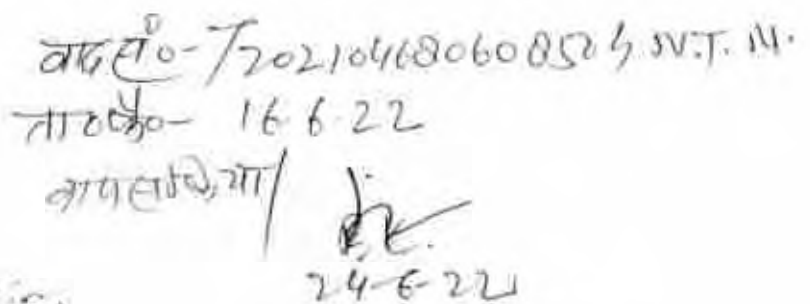 वाद सं०- T202104680608524 N.T. M.
ता०फै०- 16.6.22
वाप्स किया
24-6-22